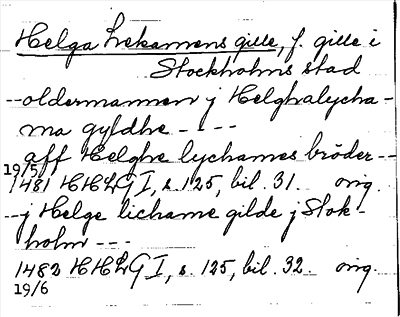 Helga Lekamens gille, f. gille i
Stockholms stad
-- oldermannen j Helghalycha-
ma gyldhe ----
aff Helghe lychames bröder --
19/5
1481 HHLG I, s. 125, bil. 31. orig.
-- j Helge lichame gilde j Stok-
holm ---
1482 HHLG I, s. 125, bil. 32. orig.
19/6